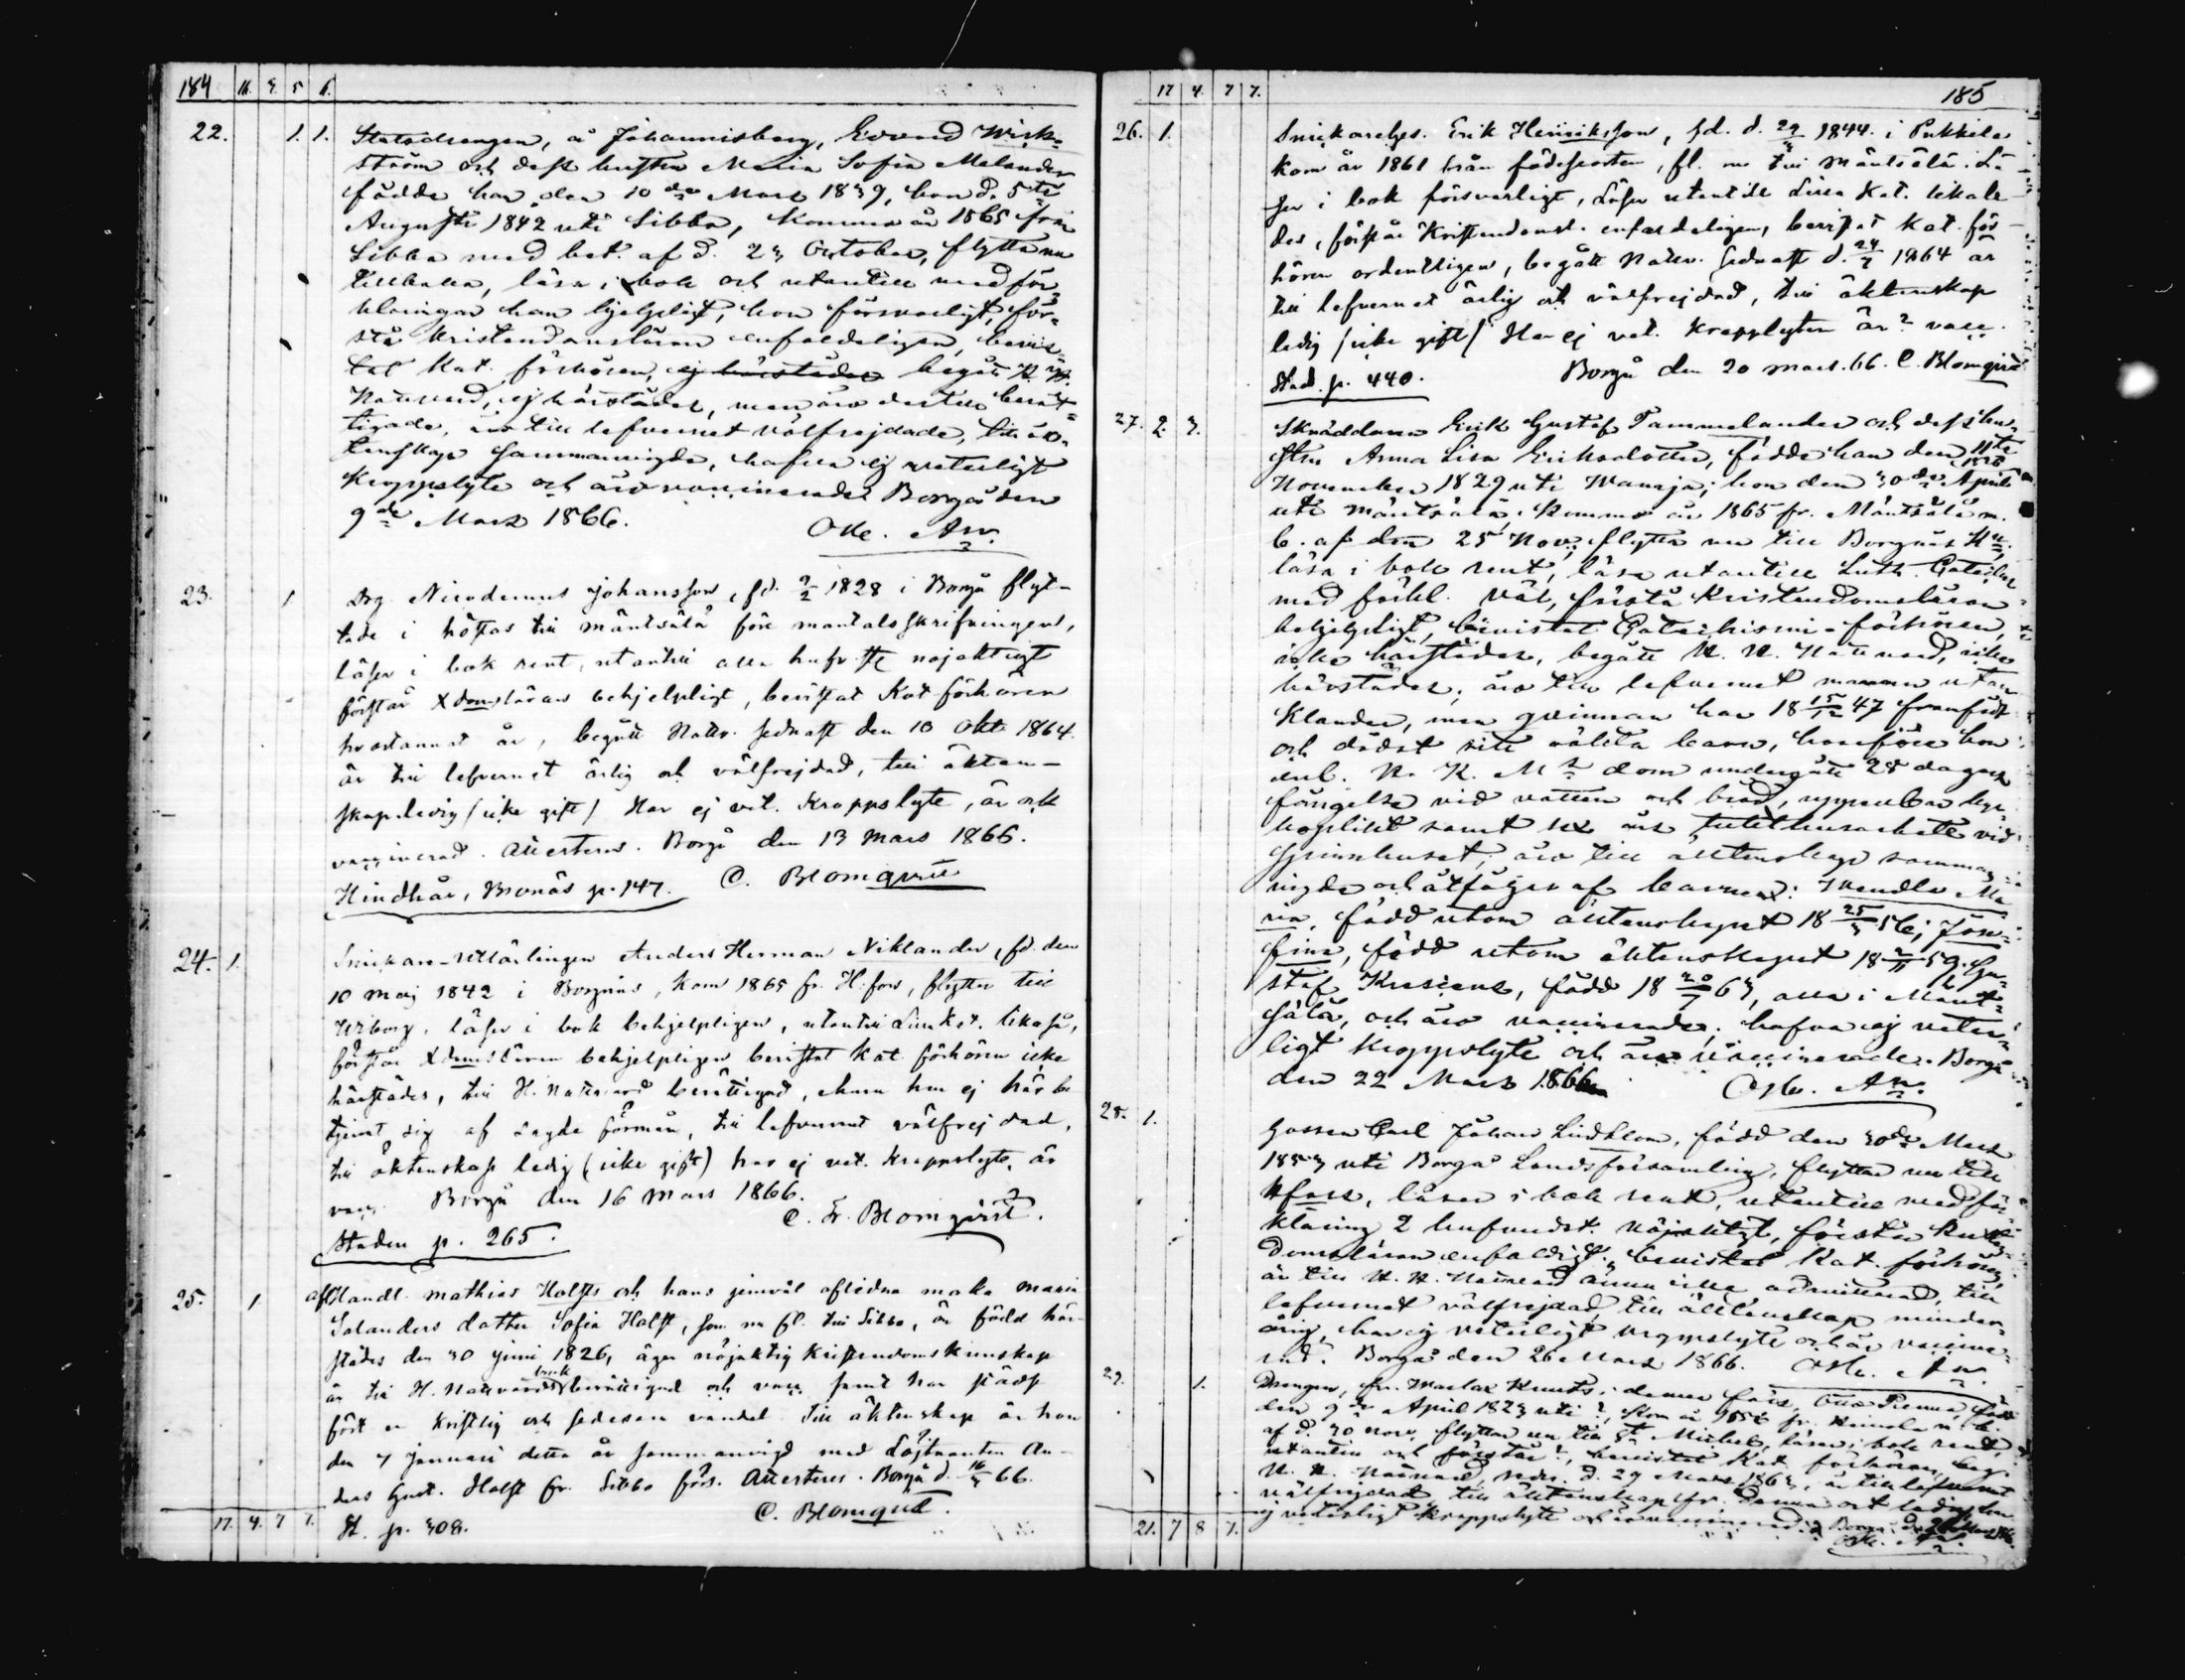 184 16. 3. 5 6.
22. 1. 1. Statsdrengen, å Johannisberg, Edvard Wick-
ström och dess hustru Maria Sofia Melander
födde han den 10de Mars 1839, hon d. 5te
Augusti 1842 uti Sibbo, kommo år 1865 från
Sibbo med bet. af d. 23 October, flytta nu
tillbaka, läsa i bok och utantill med för-
klaringar han hjelpligt, hon försvarligt, för-
stå kristendomsläran enfaldeligen, bevis-
tat Kat. förhören, ej härstädes begått H. H.
Nattvard, ej härstädes, men äro dertill berät-
tigade, äro till lefvernet välfrejdade, till äk-
tenskap sammanvigde, hafva ej veterligt
kroppslyte och äro vaccinerade. Borgå den
9de Mars 1866. Oke. An.
23. 1 Drg Nicodemus Johansson, fd. 1828 i Borgå flyt-
tade i höstas till Mäntsälä före mantalsskrifningen,
läser i bok rent, utantill alla hufvst nöjaktigt
förstår Xdomsläran behjelpligt, bevistat Kat. förhören
hvartannat år, begått Nattv. sednast den 10 Okt 1864.
är till lefvernet ärlig och välfrejdad, till äkten-
skap ledig (icke gift) Har ej vet. kroppslyte, är ock
vaccinerad. Attesteras. Borgå den 13 Mars 1866.
Hindhår, Monäs p. 147. C. Blomqvist
24. 1. Snickare-Utlärlingen Anders Herman Niklander, fd. den
10 Maj 1842 i Borgnäs, kom 1865 fr. H:fors, flyttar till
Wiborg, läser i bok behjelpligen, utantill Lill Kat. likaså,
förstår Xdomsläran behjelpligen bevistat Kat. förhören icke
härstädes, till H. Nattvard berättigad, ehuru han ej här be
tjenat sig af sagde förmån, till lefvernet välfrejdad,
till äktenskap ledig (icke gift) har ej vet. kroppslyte, är
vacc. Borgå den 16 Mars 1866.
C. Fr. Blomqvist.
Staden p. 265.
25. 1. afl Handl. Mathias Holfts och hans jemväl aflidna maka Maria
Solanders dotter Sofia Holft, som nu fl. till Sibbo, är född här-
städes den 30 Junii 1826, äger nöjaktig kristendomskunskap
är till H. Nattvardsbruk berättigad och vacc. samt har städse
fört en kristlig och sedesam vandel. Till äktenskap är hon
den 7 Januari detta år sammanvigd med Löjtnanten An-
ders Gust. Holft fr. Sibbo förs. Attesteras. Borgå d. 16/3 66.
C. Blomqvist.
17. 4. 7 7. St. p. 308.
17 4. 7 7. 185
26. 1. Snickarelges. Erik Henriksson, fd. d. 1844. i Pukkila
kom år 1861 från födelseorten, fl. nu till Mäntsälä. Lä-
ser i bok försvarligt, Läser utantill Lilla Kat. likale-
des, förstår Kristendomsl. enfaldeligen, bevistat Kat. för-
hören ordentligen, begått Nattv. sednast d. 1864 är
till lefvernet ärlig och välfrejdad, till äktenskap
ledig (icke gift) Har ej vet. kroppslyten är ? vacc.
Stad. p. 440. Borgå den 20 Mars. 66. C. Blomqvist
27. 2. 3. Skräddaren Erik Gustaf Tammelander och dess hu-
stru Anna Lisa Eriksdotter, födde han den 11te
November 1829 uti Wanaja; hon den 30de April 1828
uti Mäntsälä. Kommo år 1865 fr. Mäntsälä m.
b. af den 25 Nov., flytta nu till Borgnäs Kll.
läsa i bok rent, läsa utantill Luth. Cateches
med förkl. väl, förstå Kristendomsläran
behjelpligt, bevistat Catechismi-förhören,
icke härstädes, begått H. H. Nattvard, icke
härstädes; äro till lefvernet mannen utan
klander, men qvinnan har 18 15/12 47 framfödt
och dödat sitt oäkta barn, hvarföre hon
enl. N. K. Mts dom undergått 28 dagars
fängelse vid vatten och bröd, uppenbar kyr-
koplikt samt sex års tukthusarbete vid
Spinnhuset; äro till äktenskap samman-
vigde och åtföljes af barnen: Wendla Ma-
ria, född utom äktenskapet 18 25/3 56; Jose-
fina, född utom äktenskapet 18 2/11 59. Gu-
staf Kresiens, född 18 20/7 63, alla i Mänt-
sälä, och äro vaccinerade; hafva ej veter-
ligt kroppslyte och äro vaccinerade. Borgå
den 22 Mars 1866. Oke. An.
28. 1. Gossen Carl Johan Lindblom, född den 30de Mars
1853 uti Borgå Landsförsamling, flyttar nu till
Hfors, läser i bok rent, utantill med för-
klaring 2 hufvudst. nöjaktigt, förstår Kristen-
domsläran enfaldigt, bevistat Kat. förhören,
är till H. H. Nattvard ännu icke admitterad, till
lefvernet välfrejdad, till äktenskap minder-
årig, har ej veterligt kroppslyte och är vaccine-
rad. Borgå den 26 Mars 1866. Oke. An.
29. 1. Drengen, fr. Martas Knuts, i denna förs, Otto född
den 9de April 1823 uti ?, kom år 1856 fr. Heinola m. b.
af d. 30 Nov. flyttar nu till St Michel, läser i bok rent,
utantill och förstår ?, bevistat Kat. förhören, beg.
H. H. Nattvard, sedn. d. 29 Mars 1863, är till lefvernet
välfrejdad, till äktenskap fr. denna ort ledig, har
ej veterligt kroppslyte och är vaccinerad. Borgå d. 26 Mars 1866.
21. 7 8 7. Oke. An.